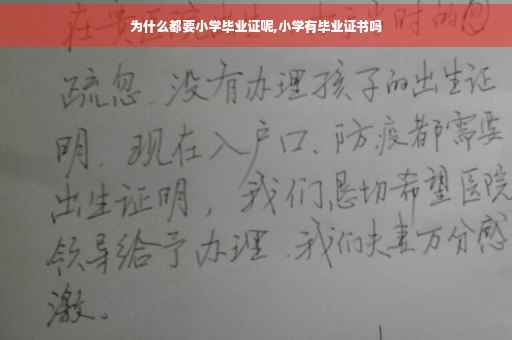 为什么都要小学毕业证呢,小学有毕业证书吗
疏忽.没有办理孩子的出生证
明.现在入户口、防疫都需要
出生证明,我们恳切希望医院
领导给予办理.我们夫妻万分感
激。